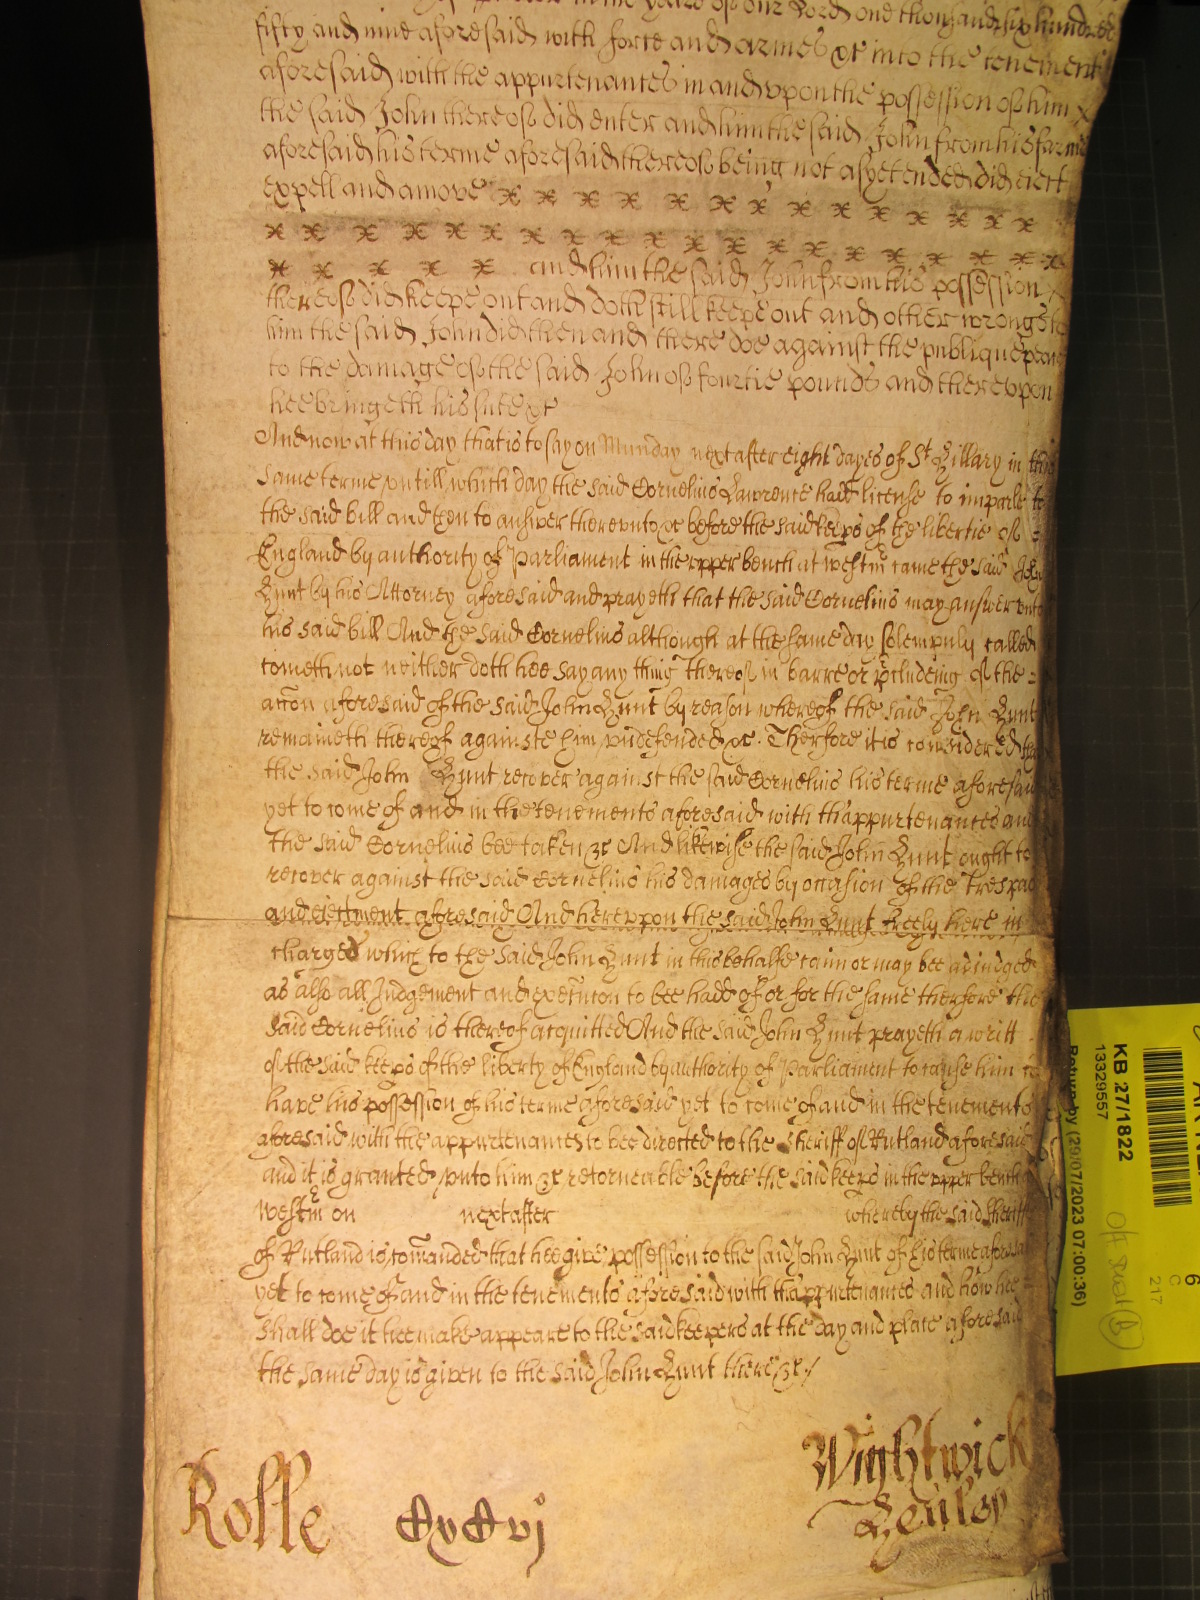 in the yeare of our Lord one thousand six hundred
fifty and nine aforesaid with force and armes &c into the tenement
aforesaid with the appurtenances in and vpon the possession of him x
the said John thereof did enter and him the said John from his farme
aforesaid his terme aforesaid thereof being not as yet ended did eiect
expell and amove x x x x x x x x x x x x x x
x x x x x x x x x x x x x x x x x x x x
x x x x x x and him the said John from his possession
thereof did keepe out and doth still keepe out and other wrongs to
him the said John did then and there doe against the publique peace
to the damage of the said John of fourtie pounds and therevpon
hee bringeth his sute &c
And now at this day that is to say on Munday next after eight dayes of St Hillary in this
same terme vntill which day the said Cornelius Lawrence hadd license to imparle to
the said bill and then to answer therevnto &c before the said keeps of the libertie of
England by authority of Parliament in the vpper bench at westm came the said John
Hunt by his Attorney aforesaid and prayeth that the said Cornelius may answer vnto
his said bill And the said Cornelius although at the same day solempnly called
cometh not neither doth hee say any thing thereof in barre or pcludeing of the
accon aforesaid of the said John Hunt by reason whereof the said John Hunt
remaineth thereof againste him vndefended &c. Therfore it is considered that
the said John Hunt recover against the said Cornelius his terme aforesaid
yet to come of and in the tenements aforesaid with thappurtenances and
the said Cornelius bee taken &c And likewise the said John Hunt ought to
recover against the said Cornelius his damages by occasion of the trespas
and eiectment aforesaid And herevppon the said John Hunt freely here in
charged which to the said John Hunt in this behalfe cann or may bee adiudged
as also all Judgement and execucon to bee hadd of or for the same therfore the
said Cornelius is thereof acquitted And the said John Hunt prayeth a writt
of the said keeps of the liberty of England by authority of Parliament to cause him to
have his possession of his terme aforesaid yet to come of and in the tenements
aforesaid with the appurtenances to bee directed to the Sheriff of Rutland aforesaid
and it is granted vnto him &c retorneable before the said keeps in the vpper bench at
westm on next after whereby the said Sheriff
of Rutland is comanded that hee give possession to the said John Hunt of his terme aforesaid
yet to come of and in the tenements aforesaid with thappurtenances and how hee
shall doe it hee make appeare to the said keepers at the day and place aforesaid
the same day is given to the said John Hunt there &c./
Wightwick
Rolle CxCvj
Henley
KB 27/1822
13329557
Return by (29/07/2023 07:00:36)
6
C
217